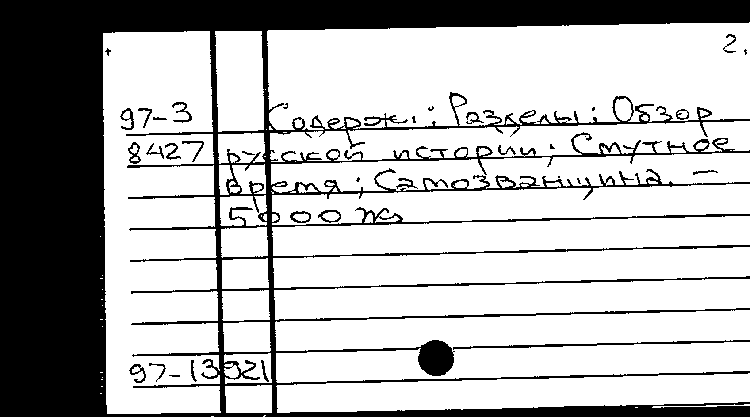 2.
97-3 Содерж.: Разделы: Обзор
8427 русской истории; Смутное
время; Самозванщина. –
5000 экз
97-13921